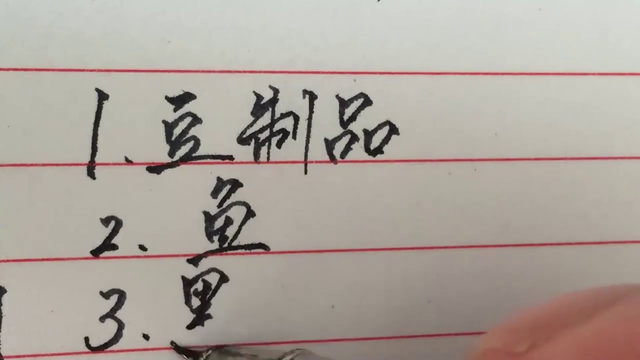 1.豆制品
2.鱼
3.